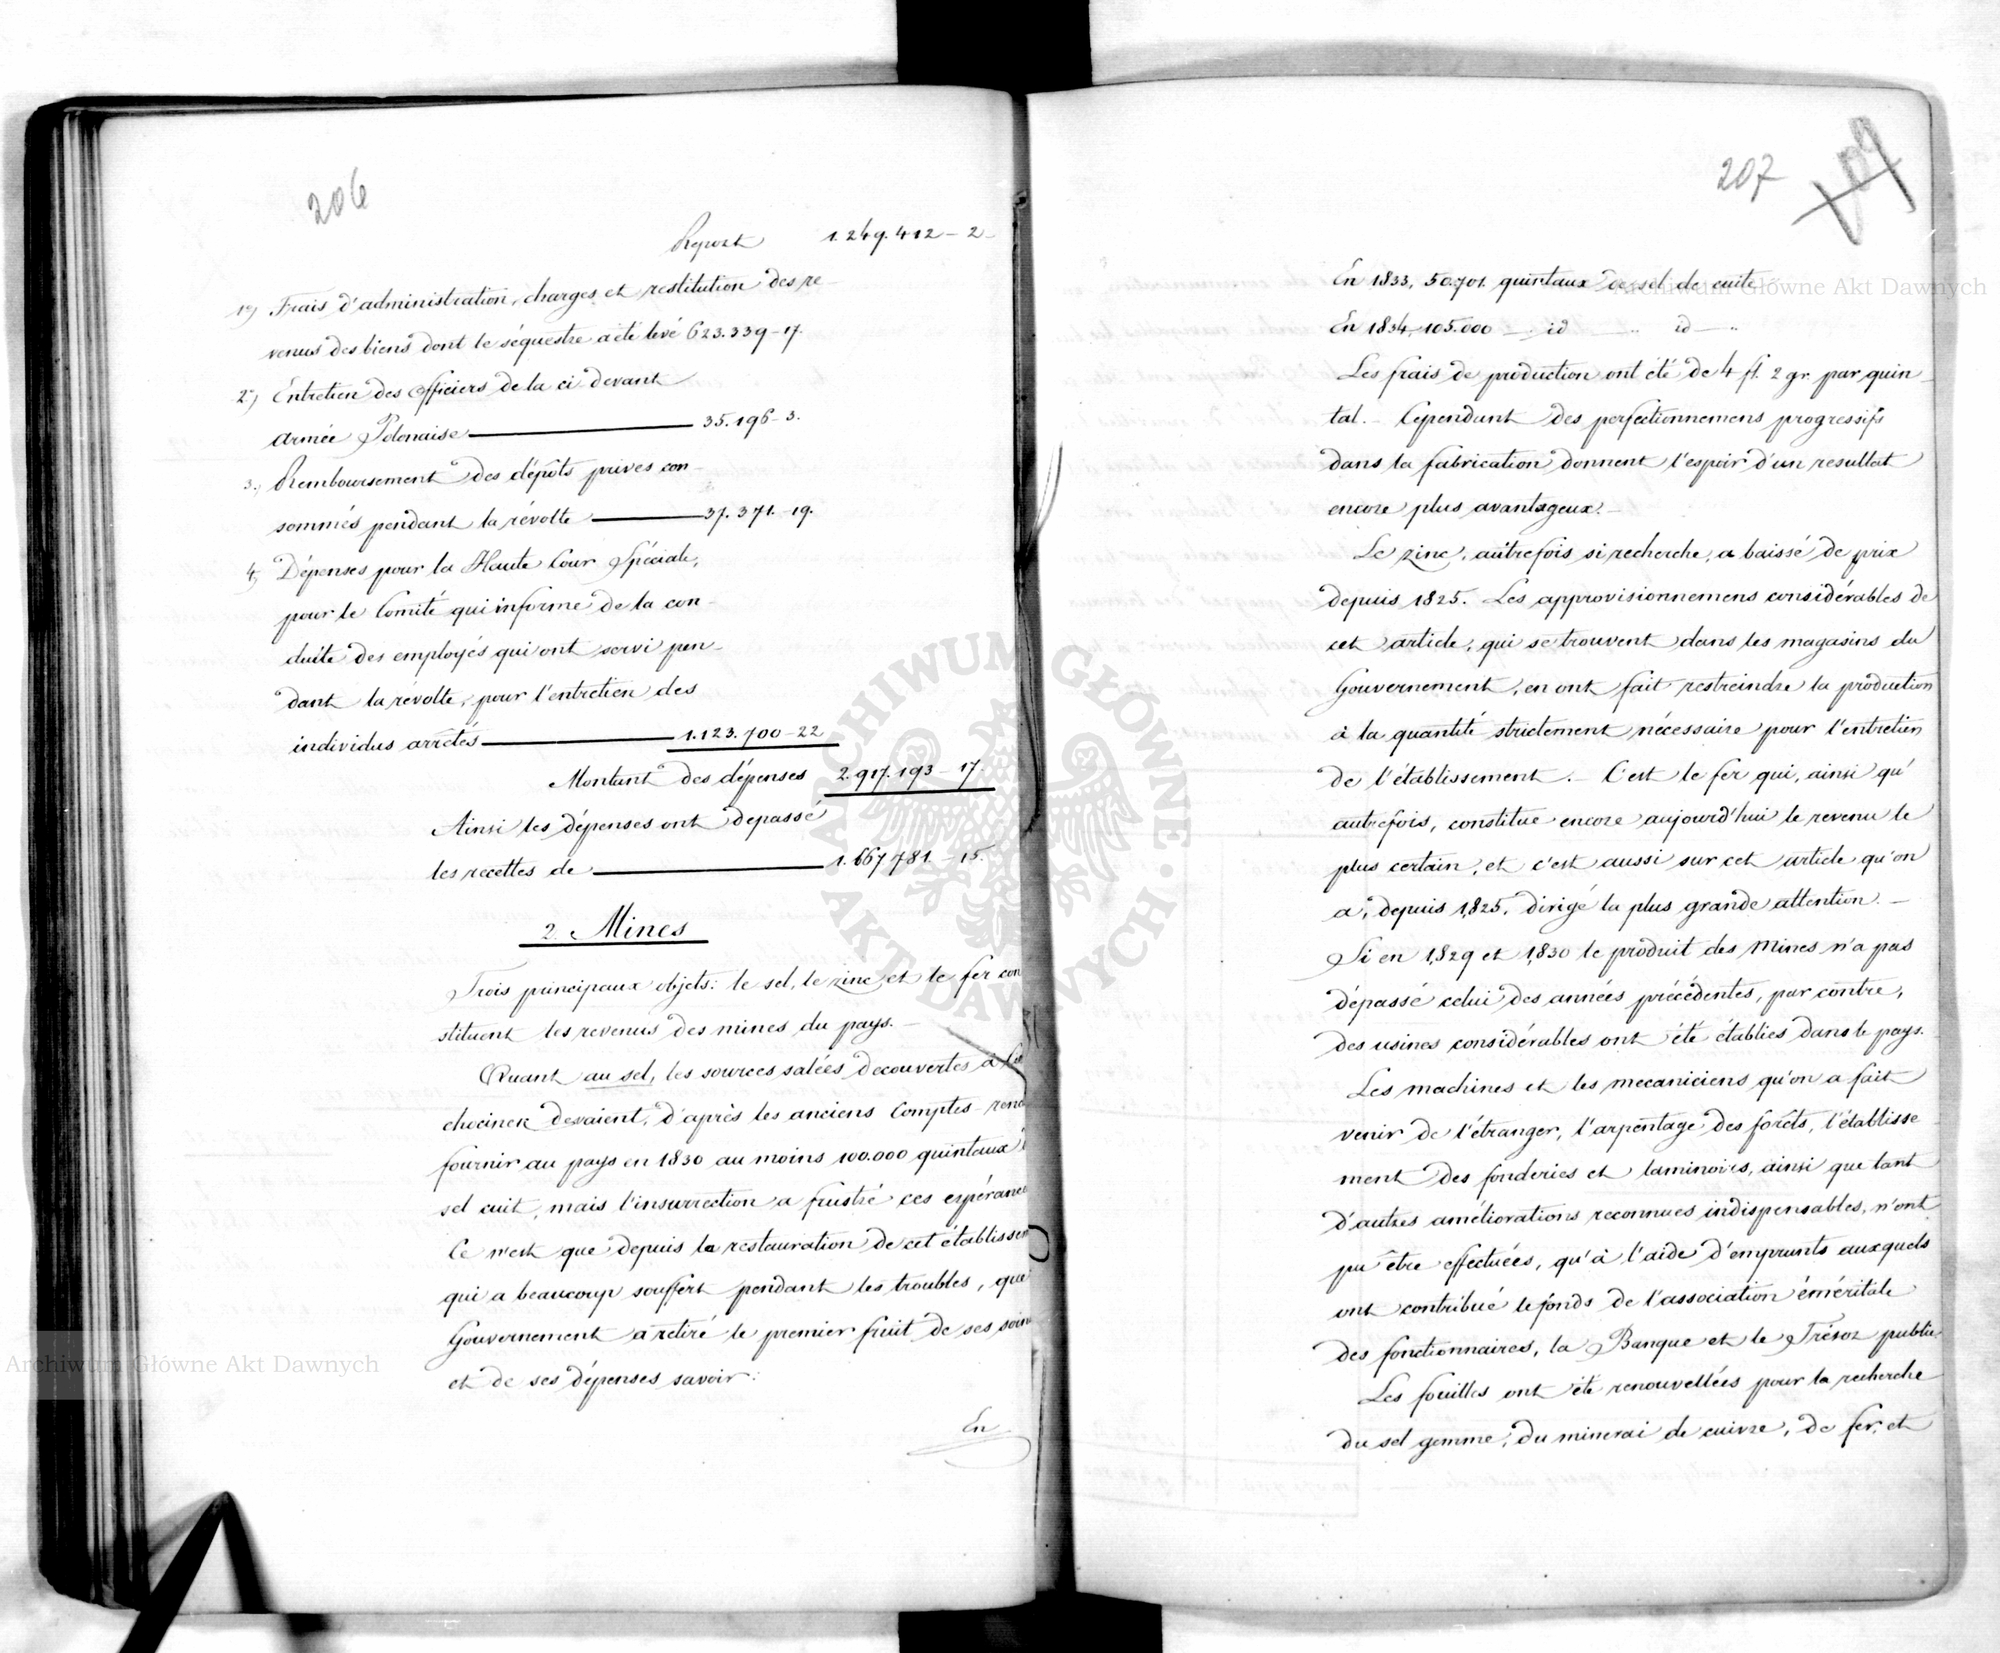 206
Report 1.249.412 – 2 –
1º) Frais d'administration, charges et restitution des re–
venus des biens dont le séquestre a été levé 623.339 – 17.
2º) Entretien des officiers de la ci devant
armée Polonaise 35.196 – 3.
3.) Remboursement des dépôts privés con–
sommés pendant la révolte 37.371. – 19.
4) Dépenses pour la Haute Cour Spéciale,
pour le Comité qui informe de la con–
duite des employés qui ont servi pen–
dant la révolte, pour l'entretien des
individus arrêtés 1.123.700 – 22
Montant des dépenses 2.917.193 – 17.
Ainsi les dépenses ont depassé
les recettes de 1.667.781. – 15.
2. Mines
Trois principaux objets: le sel, le zinc et le fer con
stituent les revenus des mines du pays. –
Quant au sel, les sources salées decouvertes à Cie
chocinek devaient, d'après les anciens Comptes-rend
fournir au pays en 1830 au moins 100.000 quintaux
sel cuit, mais l'insurrection a frustré ces espérance
Ce n'est que depuis la restauration de cet établissem
qui a beaucoup souffert pendant les troubles, que
Gouvernement a retiré le premier fruit de ses soins
et de ses dépenses savoir:
En
207
En 1833, 50.701. quintaux de sel de cuite
En 1834, 105.000 – id – " id – "
Les frais de production ont été de 4 fl. 2 gr. par quin–
tal. – Cependant des perfectionnemens progressifs
dans la fabrication donnent l'espoir d'un resultat
encore plus avantageux. –
Le zinc, autrefois si recherché, a baissé de prix
depuis 1825. Les approvisionnemens considérables de
cet article, qui se trouvent dans les magasins du
Gouvernement, en ont fait restreindre la production
à la quantité strictement nécessaire pour l'entretien
de l'établissement. – C'est le fer qui, ainsi qu'
autrefois, constitue encore aujourd'hui le revenu le
plus certain, et c'est aussi sur cet article qu'on
a, depuis 1825, dirigé la plus grande attention. –
Si en 1829 et 1830 le produit des Mines n'a pas
dépassé celui des années précédentes, par contre,
des usines considérables ont été établies dans le pays.
Les machines et les mecaniciens qu'on a fait
venir de l'étranger, l'arpentage des forêts, l'établisse
ment des fonderies et laminoirs, ainsi que tant
d'autres améliorations reconnues indispensables, n'ont
pu être effectuées, qu'à l'aide d'emprunts auxquels
ont contribué le fonds de l'association éméritale
des fonctionnaires, la Banque et le Trésor public
Les fouilles ont été renouvellées pour la recherche
du sel gemme, du minerai de cuivre, de fer, et
ARCHIWUM GŁÓWNE AKT DAWNYCH
Archiwum Główne Akt Dawnych
Archiwum Główne Akt Dawnych